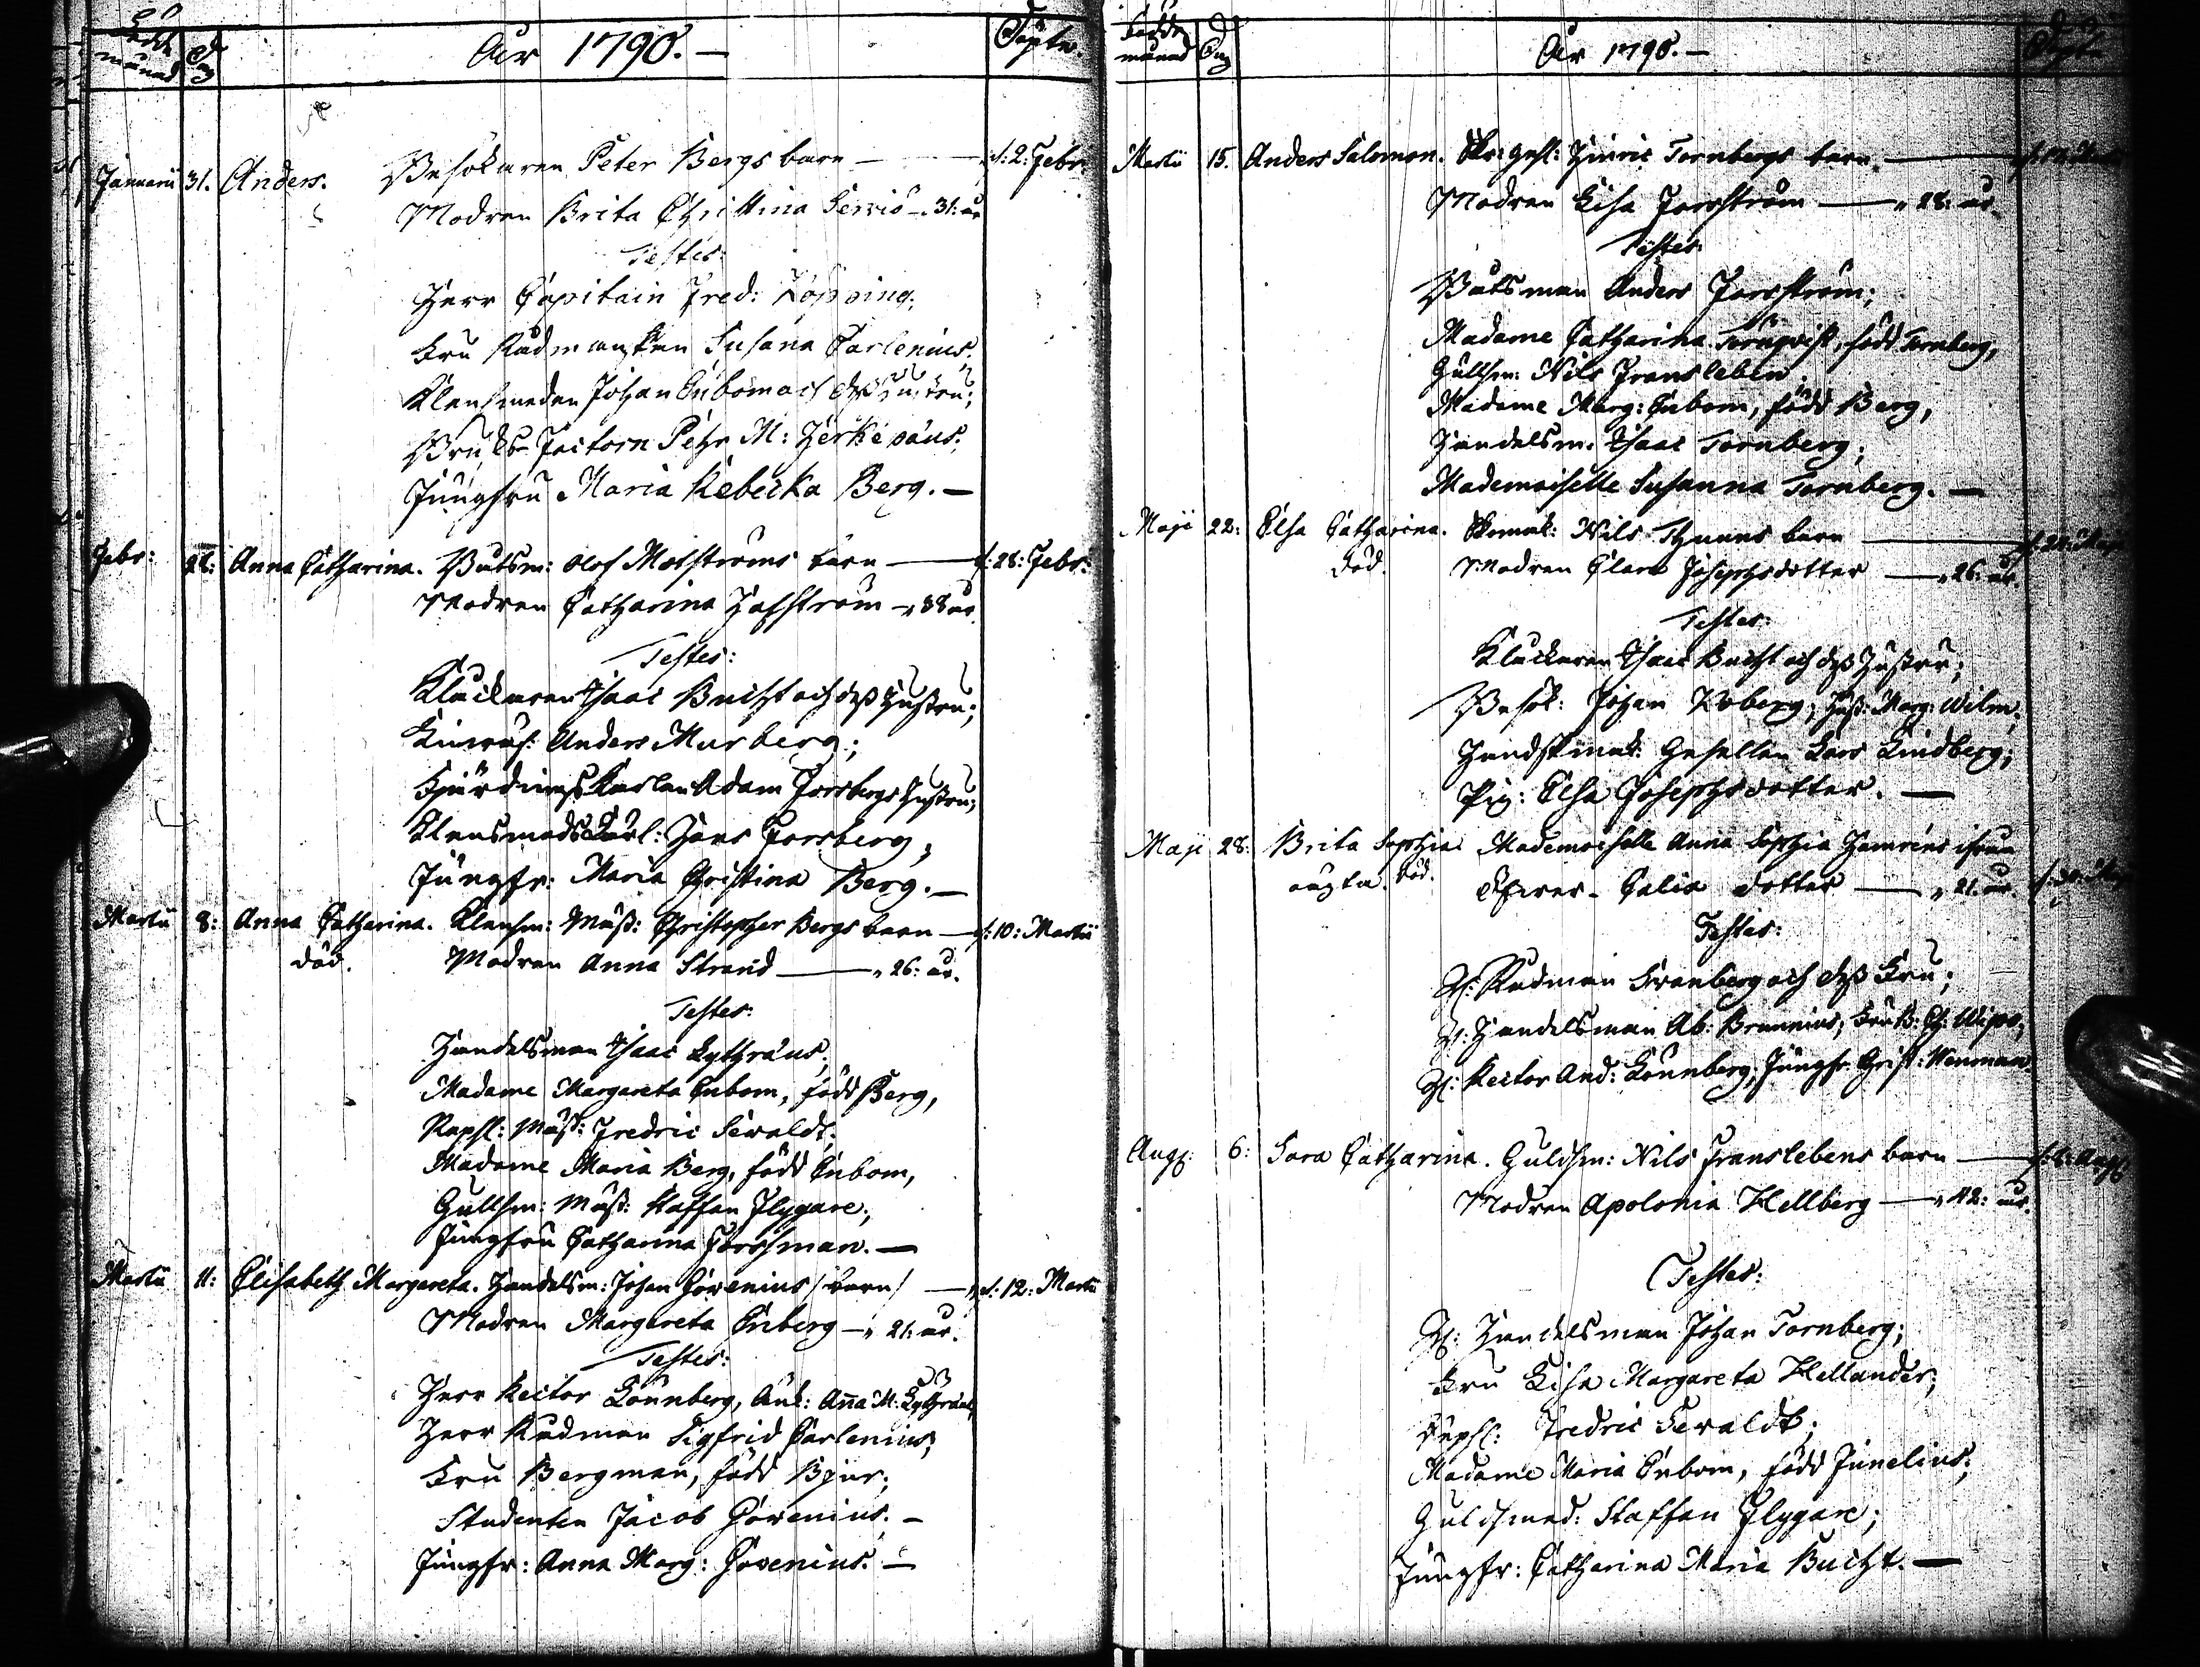 Född månad Dag År 1790.— Döpter.
Januarii 31. Anders. Besökaren Peter Bergs barn — d: 2: Febr:
Modren Brita Christina — 31: år
Testes:
Herr Capitain Fred: Köpping;
Fru Rådmanskan Susana Carlenius;
Klensmeden Johan Enbom och dess hustru;
Bruks-Factorn Petr M: Herkepäus;
Jungfru Maria Rebecka Berg.—
Febr: Anna Catharina. Båtsm: Olof barn — d: 28: Febr:
Modren Catharina Hafström — 38 år.
Testes:
Kluckaren Isaac Bucht och dess hustru;
Anders Murberg;
Fjärdingskarlen Adam Forsbergs hustru;
Hans Forsberg;
Jungfr: Maria Christina Berg.—
Martii 8: Anna Catharina. Klensm: Mäst: Christopher Bergs barn — d: 10: Martii
död. Modren Anna Strand — 26: år.
Testes:
Handelsman Isaac Lythräus;
Madame Margareta Enbom, född Berg,
Kopsl: Mäst: Fredric Sewaldt;
Madame Maria Berg, född Enbom,
Gullsm: Mäst: Staffan Flygare;
Jungfru Catharina Forssman.—
Martii 11: Elisabeth Margareta. Handelsm: Johan Govenius /barn/ — d: 12: Martii
Modren Margareta Enberg — 21: år.
Testes:
Herr Rector Lönnberg, Anna M: Lythräus;
Herr Rådman Sigfrid Carlenius;
Fru Bergman, född Bjur;
Studenten Jacob Govenius.—
Jungfr: Anna Marg: Govenius.—
Född månad Dag År 1790.— Döpt.
Martii 15. Anders Salomon. Sk: gesl: Hinric Tornbergs barn —
Modren Lisa Forsström — 28: år.
Testes:
Båtsman Anders Forsström;
Madame Catharina Törnqvist, född Tornberg,
Gullsm: Nils Fransleben
Madame Marg: Enbom, född Berg,
Handelsm: Isaac Tornberg;
Mademoiselle Susanna Tornberg.—
Maji 22: Elsa Catharina. Skomak: Nils Thuns barn —
död. Modren Clara Josephsdotter — 26: år.
Testes:
Kluckaren Isaac Bucht och dess Hustru;
Besök: Johan Roberg; Hust: Marg: Wilm;
Handskmak: Gesellen Lars Lindberg;
Pig: Elsa Josephsdotter.—
Maji 28: Brita Sophia Mademoiselle Anna Sophia
oägta. död. dotter — 21: år.
Testes:
H: Rådman Svanberg och dess Fru;
H: Handelsman Ab: Brunnius;
H: Rector And: Lönnberg; Jungfr: Christ: Wenman
Augg: 6: Sara Catharina. Guldsm: Nils Franslebens barn — d: 8: Augg
Modren Apolonia Hellberg — 42: år.
Testes:
H: Handelsman Johan Tornberg;
Fru Lisa Margareta Hellander;
Kopsl: Fredric Sewaldt;
Madame Maria Enbom, född Junelius;
Guldsmed: Staffan Flygare;
Jungfr: Catharina Maria Bucht.—